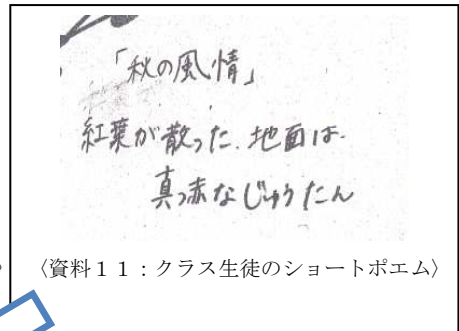 「秋の風情」
紅葉が散った.地面は.
真っ赤なじゅうたん
〈資料11:クラス生徒のショートポエム〉